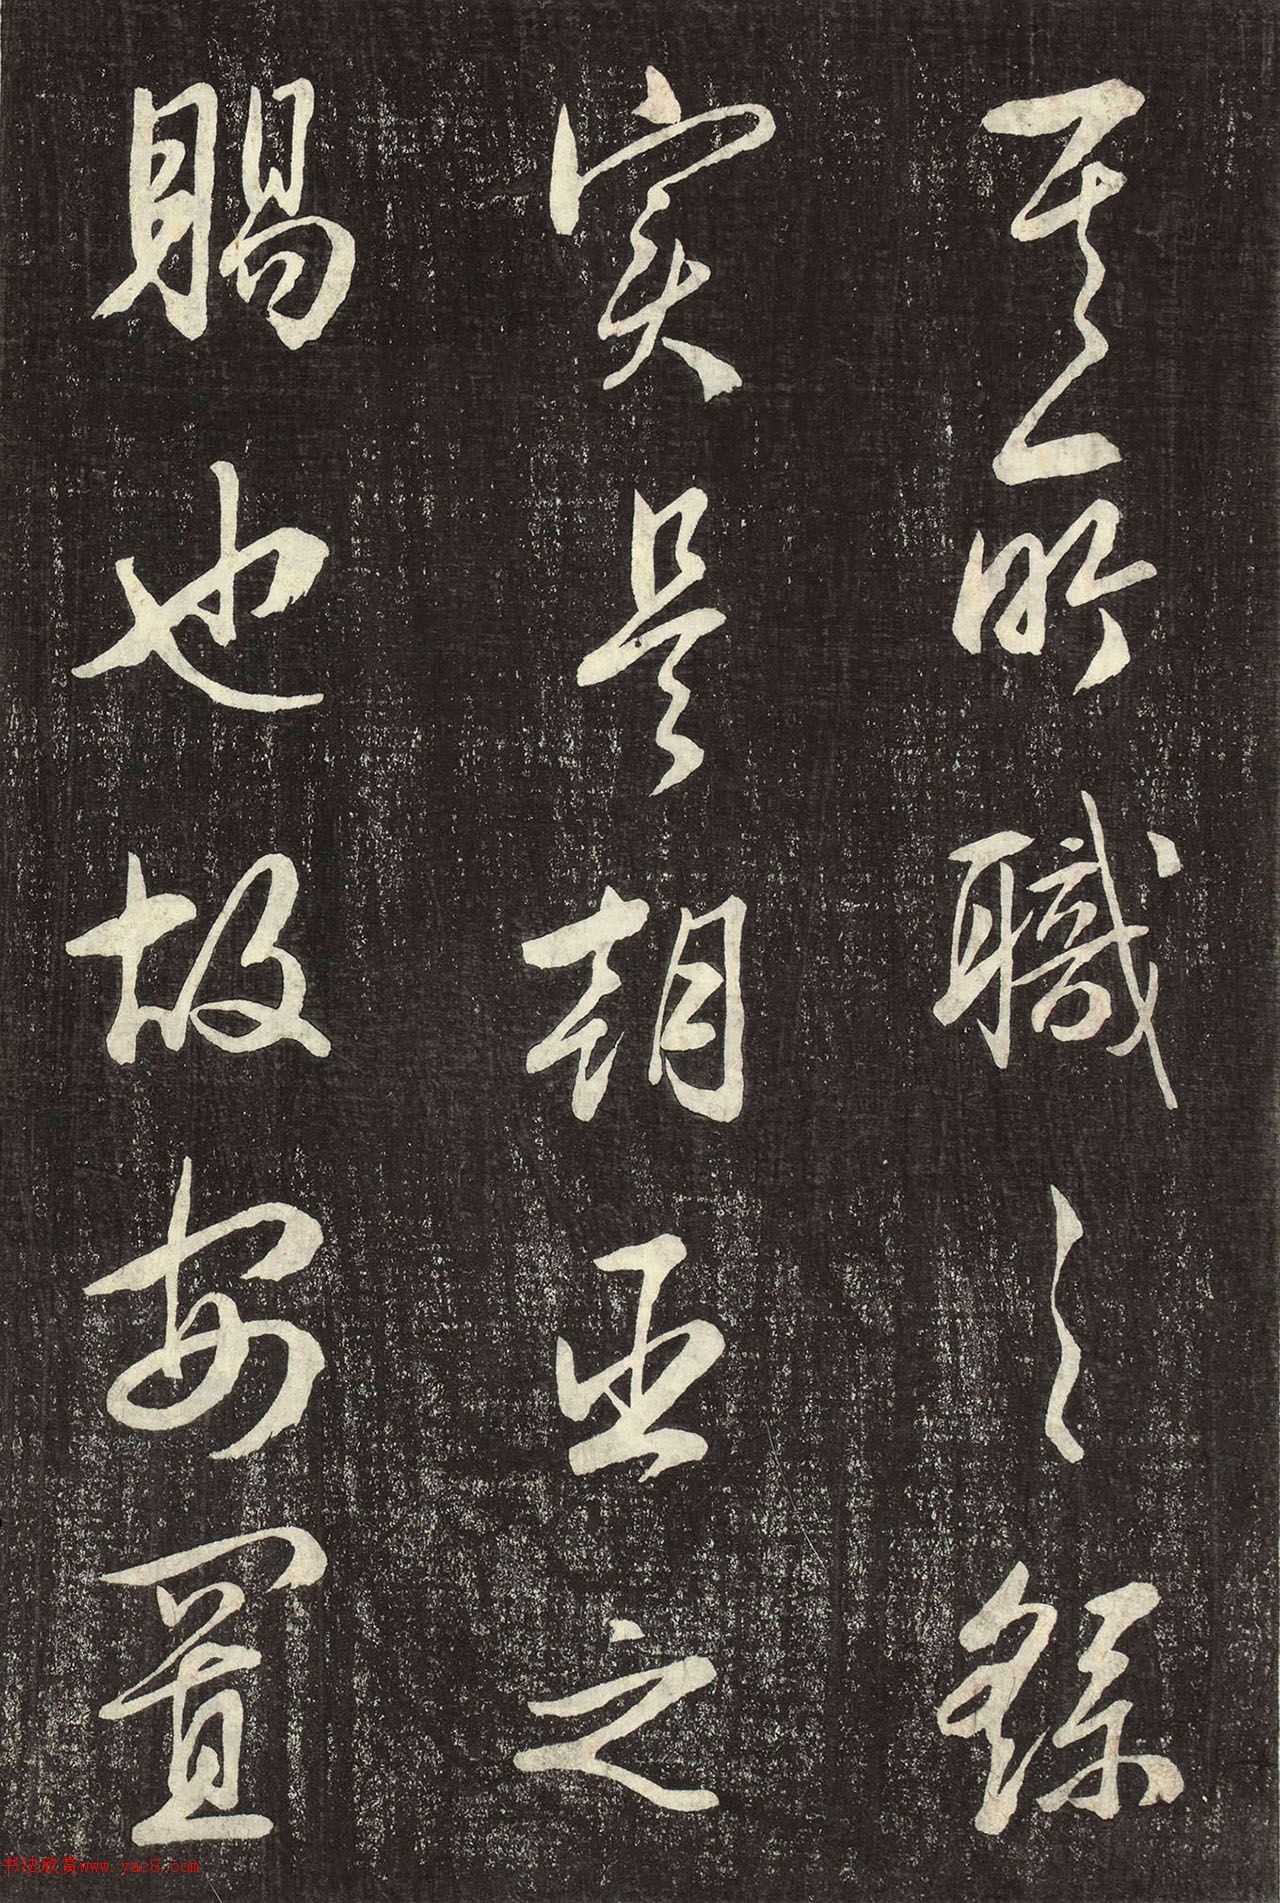 其所職之餘
實是朝廷之
賜也故安置
书法欣赏www.yac8.com